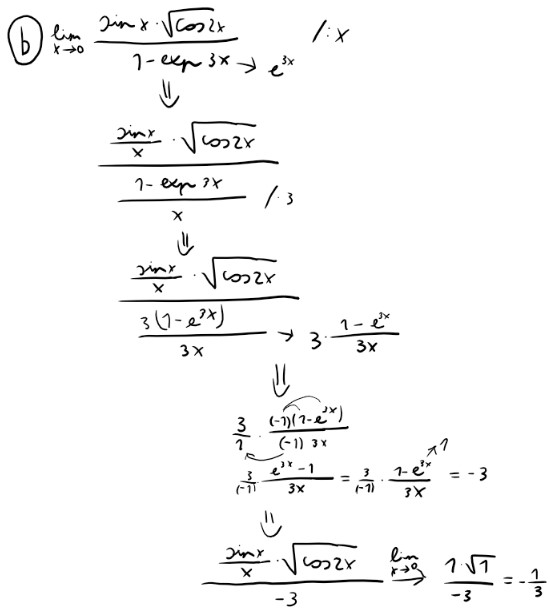 b) lim x→0 (sin x · √cos 2x) / (1 - exp 3x) → e^{3x} /: x
⇓
(sin x / x · √cos 2x) / ((1 - exp 3x) / x) /· 3
⇓
(sin x / x · √cos 2x) / (3(1 - e^{3x}) / 3x) → 3 · (1 - e^{3x}) / 3x
⇓
3/1 · (-1)(1 - e^{3x}) / (-1) 3x
3/(-1) · (e^{3x} - 1) / 3x = 3/(-1) · (1 - e^{3x}) / 3x → 1 = -3
⇓
(sin x / x · √cos 2x) / -3 lim x→0 → (1 · √1) / -3 = - 1/3